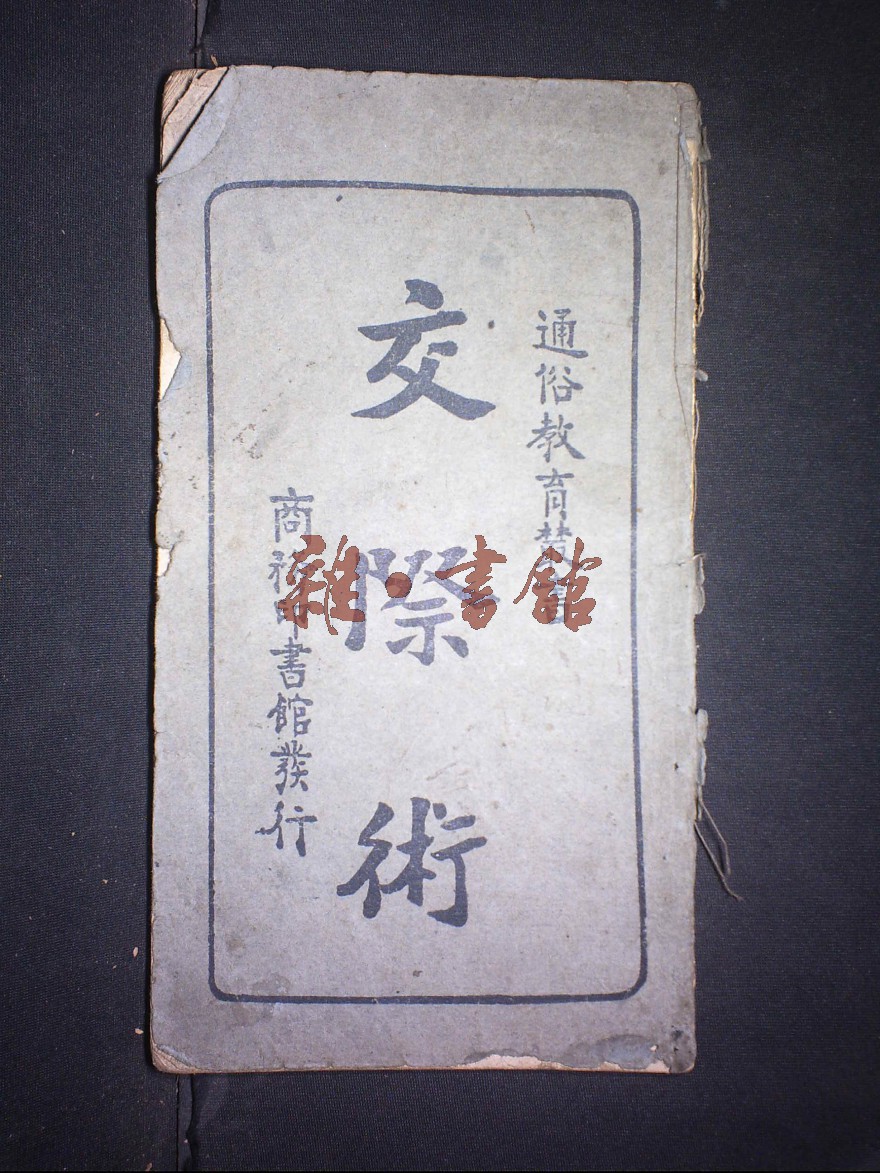 通俗教育叢書
交際術
商務印書館發行
雜·書館